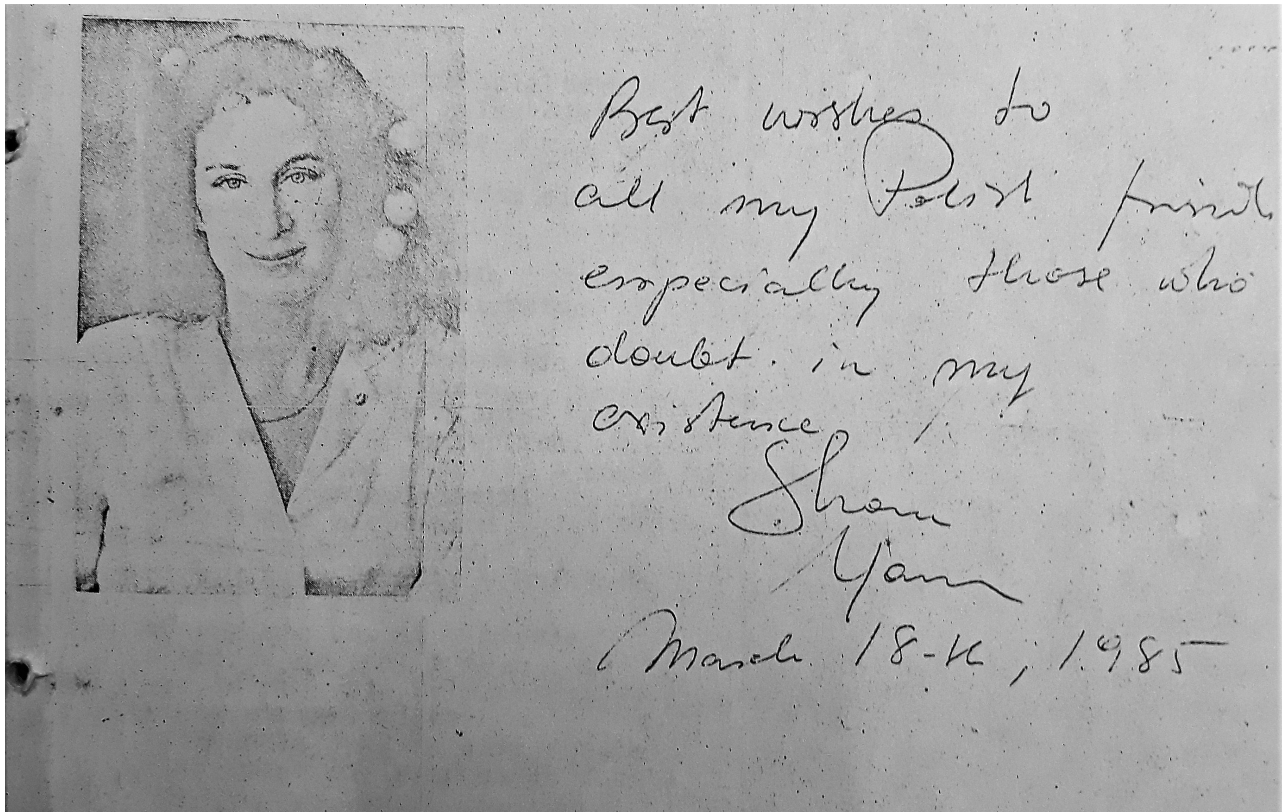 Best wishes to
all my Polish friends
especially those who
doubt in my
existence
March 18-th, 1985